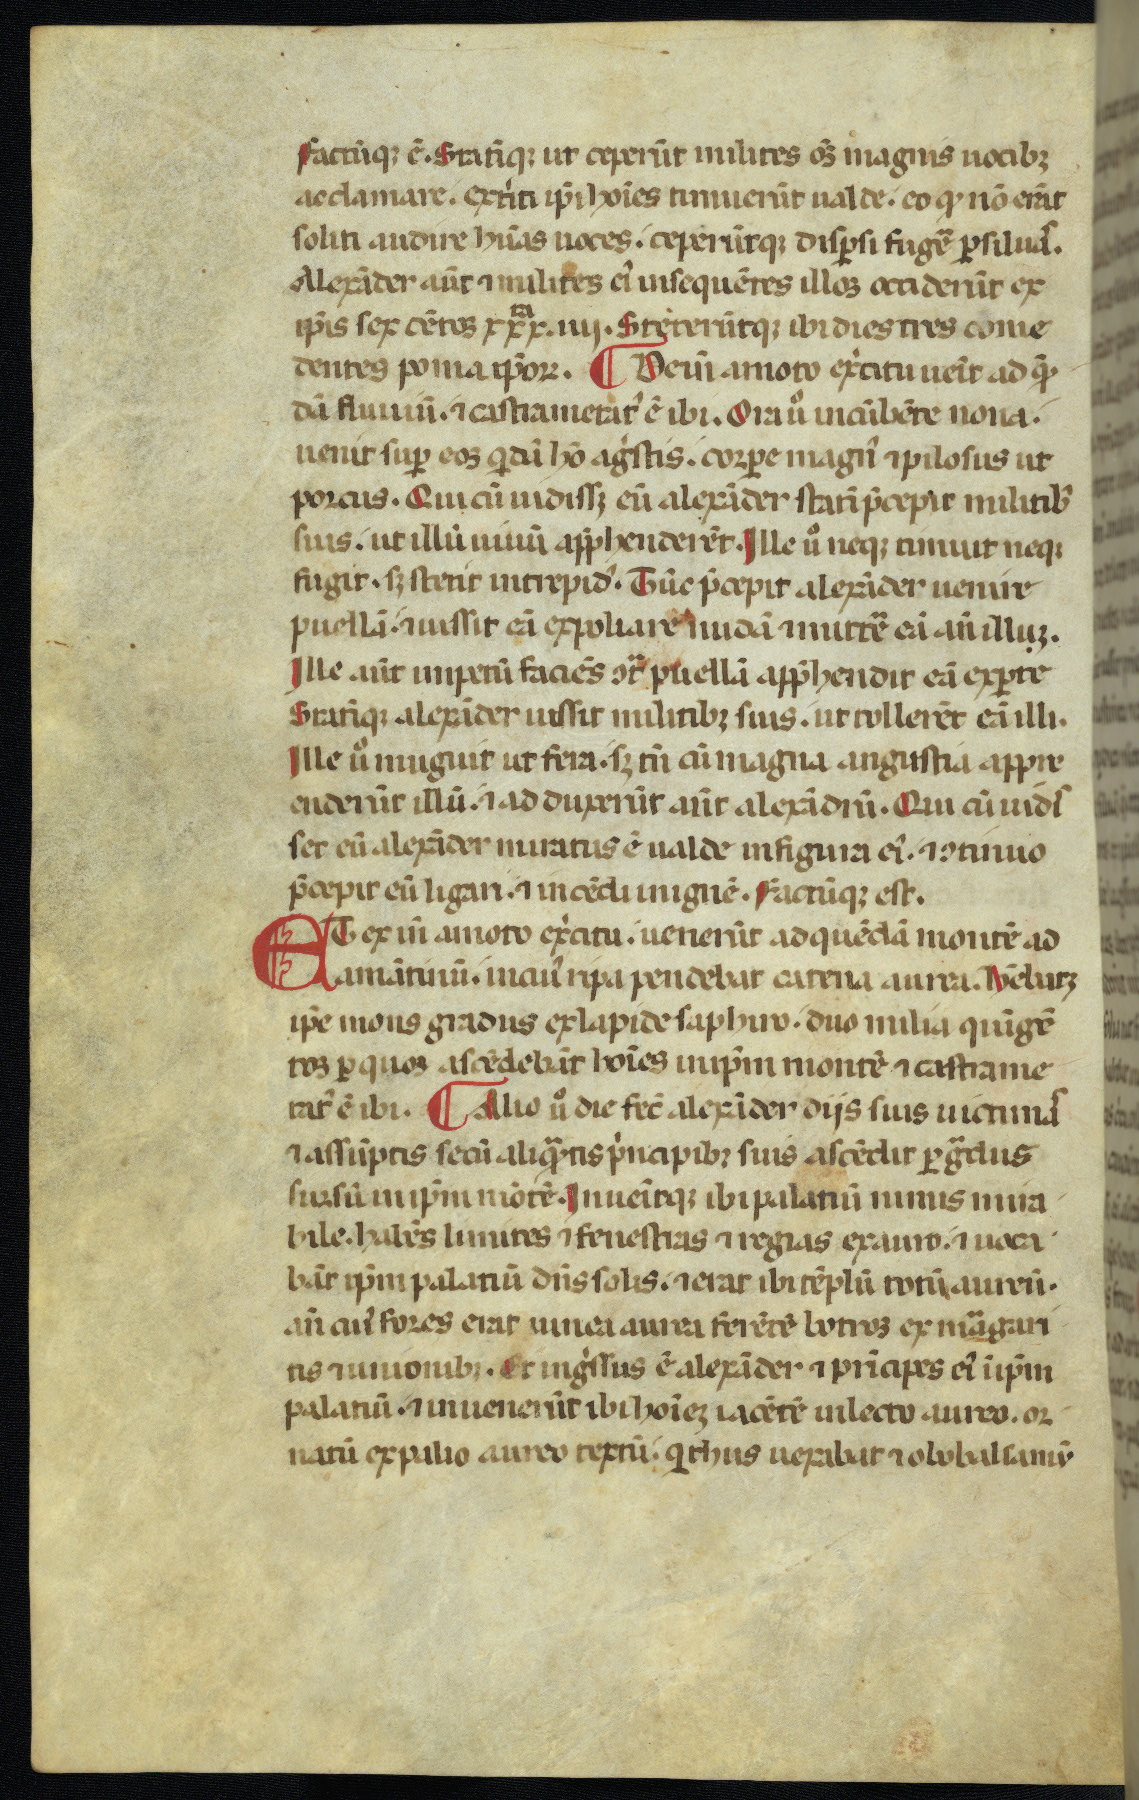 factūqꝫ ē. Statīqꝫ ut ceperūt milites oꝫ magnis uocibꝫ
acclamare. exꝰiti ip̄i hoīes timuerūt ualde. eo ꝙ nō erāt
soliti audire hūas uoces. ceperūtqꝫ disꝑsi fugē ꝑ siluā.
Alexāder aūt ⁊ milites eiꝰ insequētes illos occiderūt ex
ip̄is sex cētos xxx. iiij. Steterūtqꝫ ibi dies tres come
dentes poma ip̄oꝝ. Dein̄ amoto exꝰcitu uenit ad quē
dā fluuiū. ⁊ castrametatꝰ ē ibi. Ora ů incūbēte nona.
uenit suꝑ eos qidā hō agꝰstis. corꝑe magnꝰ ⁊ pilosus ut
porcus. Qui cū uidissꝫ eū alexāder statī p̄cepit militibꝰ
suis. ut illū uiuū app̄henderēt. Ille ů neqꝫ timuit neqꝫ
fugit. sꝫ stetit intrepidꝰ. Tūc p̄cepit alexāder uenire
puellā. ⁊ iussit eā expoliare nudā ⁊ mittē eā an̄ illuꝫ.
Ille aūt impetū faciēs ꝯtᵃ puellā app̄hendit eā ex ꝑte
Statīqꝫ alexāder iussit militibꝫ suis. ut tollerēt eā illi.
Ille ů mugiuit ut fera. sꝫ tn̄ cū magna angustia appre
enderūt illū. ⁊ adduxerūt aūt alexādrū. Qui cū uidis
set eū alexāder miratus ē ualde in figura eiꝰ. ⁊ ꝯtinuo
p̄cepit eū ligari. ⁊ incēdi in ignē. factūqꝫ est.
ET ex in̄ amoto exꝰcitu. uenerūt ad quēdā montē ad
amātinū. in cuiꝰ ripa pendebat catena aurea. hēbatꝫ
ip̄e mons gradus ex lapide saphiro. duo milia quīgē
tos ꝑ quos ascēdebāt hoīes in ip̄m montē ⁊ castrame
tatꝰ ē ibi. Alio ů die fec̄ alexāder diis suis uictimas
⁊ assūptis secū aliqᵃtis pⁱncipibꝫ suis ascēdit ꝑ gᵃdus
sursū in ip̄m mōtē. Inueītqꝫ ibi palatiū nimis mira
bile. habēs limites ⁊ fenestras ⁊ regias ex auro. ⁊ uoca
bāt ip̄m palatiū dn̄s solis. ⁊ erat ibi tēplū totū aureū.
an̄ cuiꝰ fores erat uinea aurea ferētē botros ex mᵃgari
tis ⁊ unionibꝫ. Et ingꝰssus ē alexāder ⁊ prīcipes eiꝰ ī ip̄m
palatiū. ⁊ inuenerūt ibi hoīeꝫ iacētē in lecto aureo. or
natū ex palio aureo textū. qi thus uexabat ⁊ olobalsamū